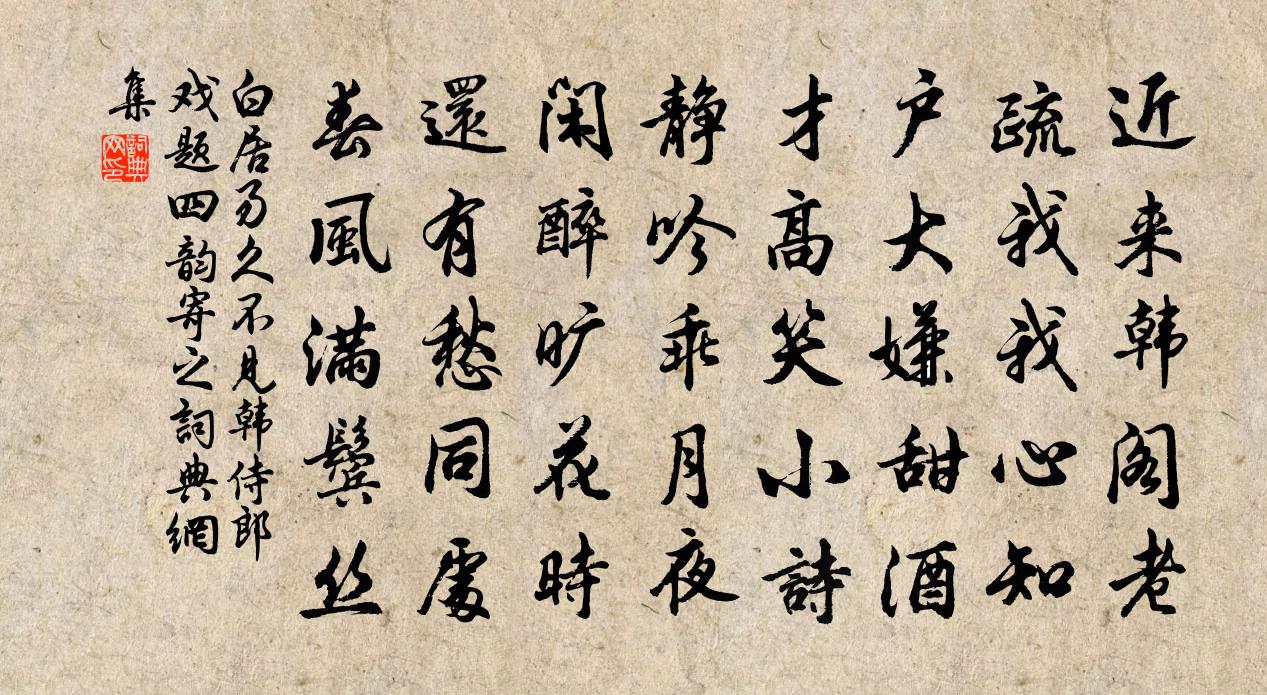 近来韩阁老
疏我我心知
户大嫌甜酒
才高笑小詩
静吟乖月夜
闲醉旷花時
還有愁同處
春風满鬓丝
白居易久不見韩侍郎
戏题四韵寄之詞典網
集
詞典網印